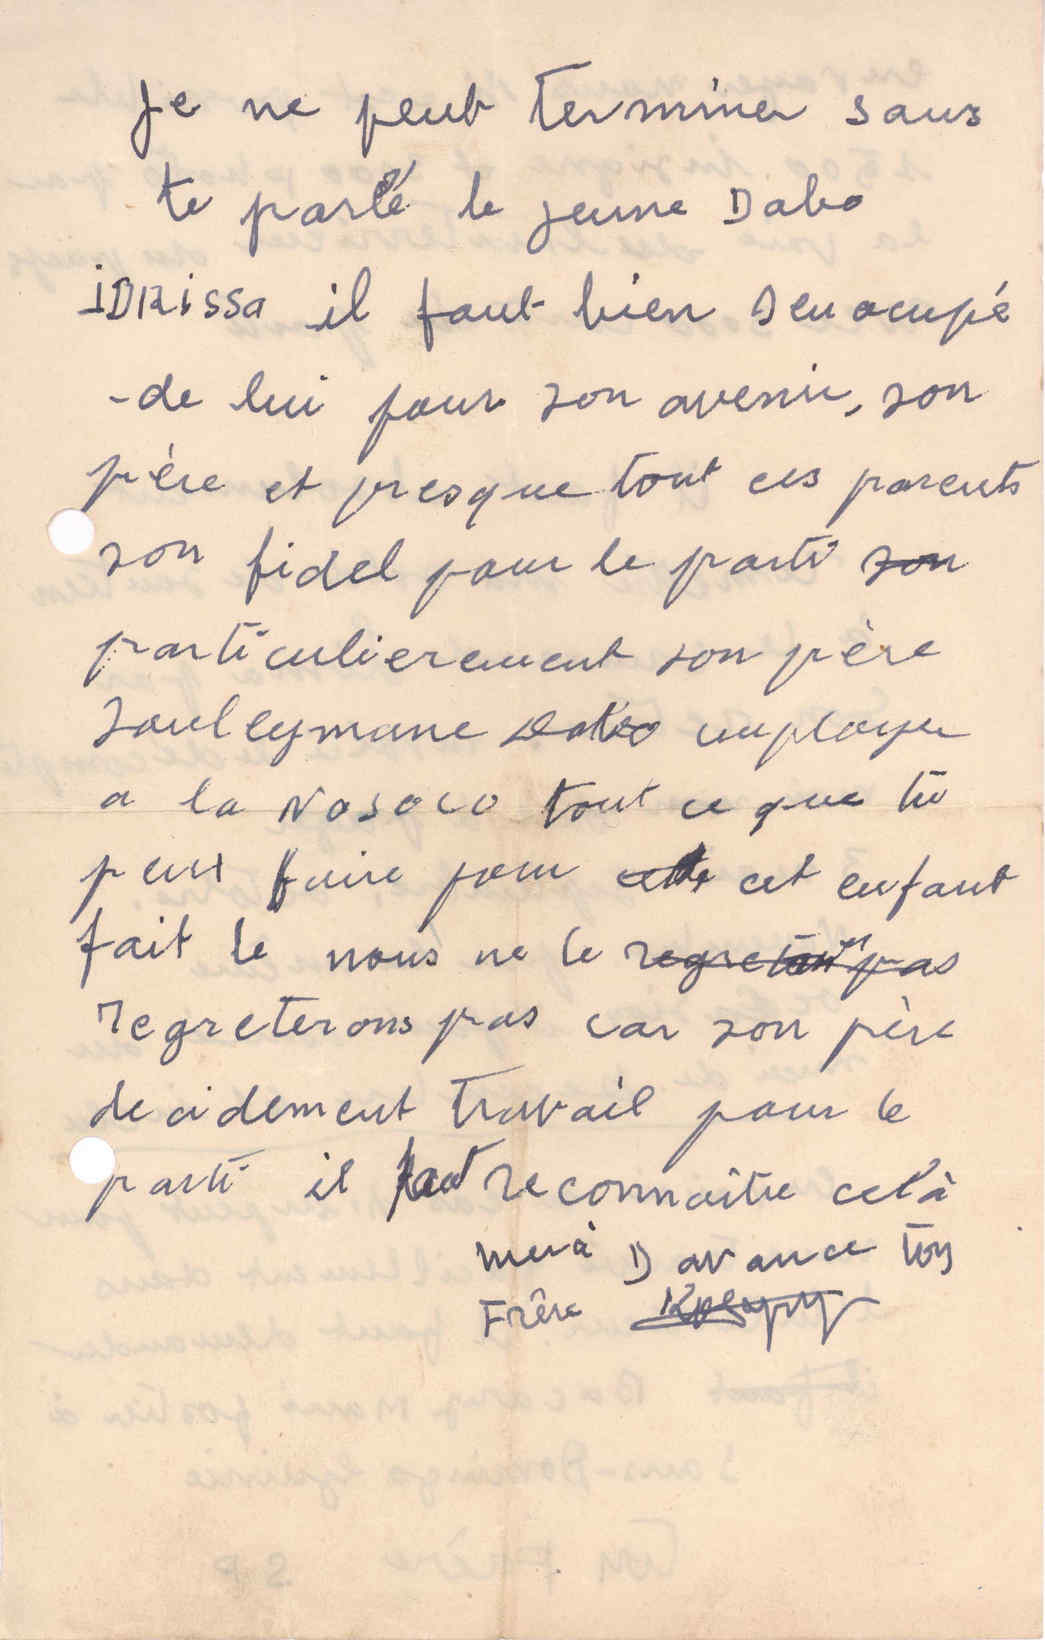 Je ne peut terminer sans
te parlé le jeune Dabo
iDRissa il faut bien D'en ocupé
-de lui pour son avenir, son
père et presque tout ces parents
son fidel pour le parti son
particulierement son père
Souleymane Dabo employer
a la NOSOCO tout ce que tu
peux faire pour cette cet enfant
fait le nous ne le regreton pas
regreterons pas car son père
decidement travail pour le
parti il faut reconnaitre celà
merci D avance ton
Frère